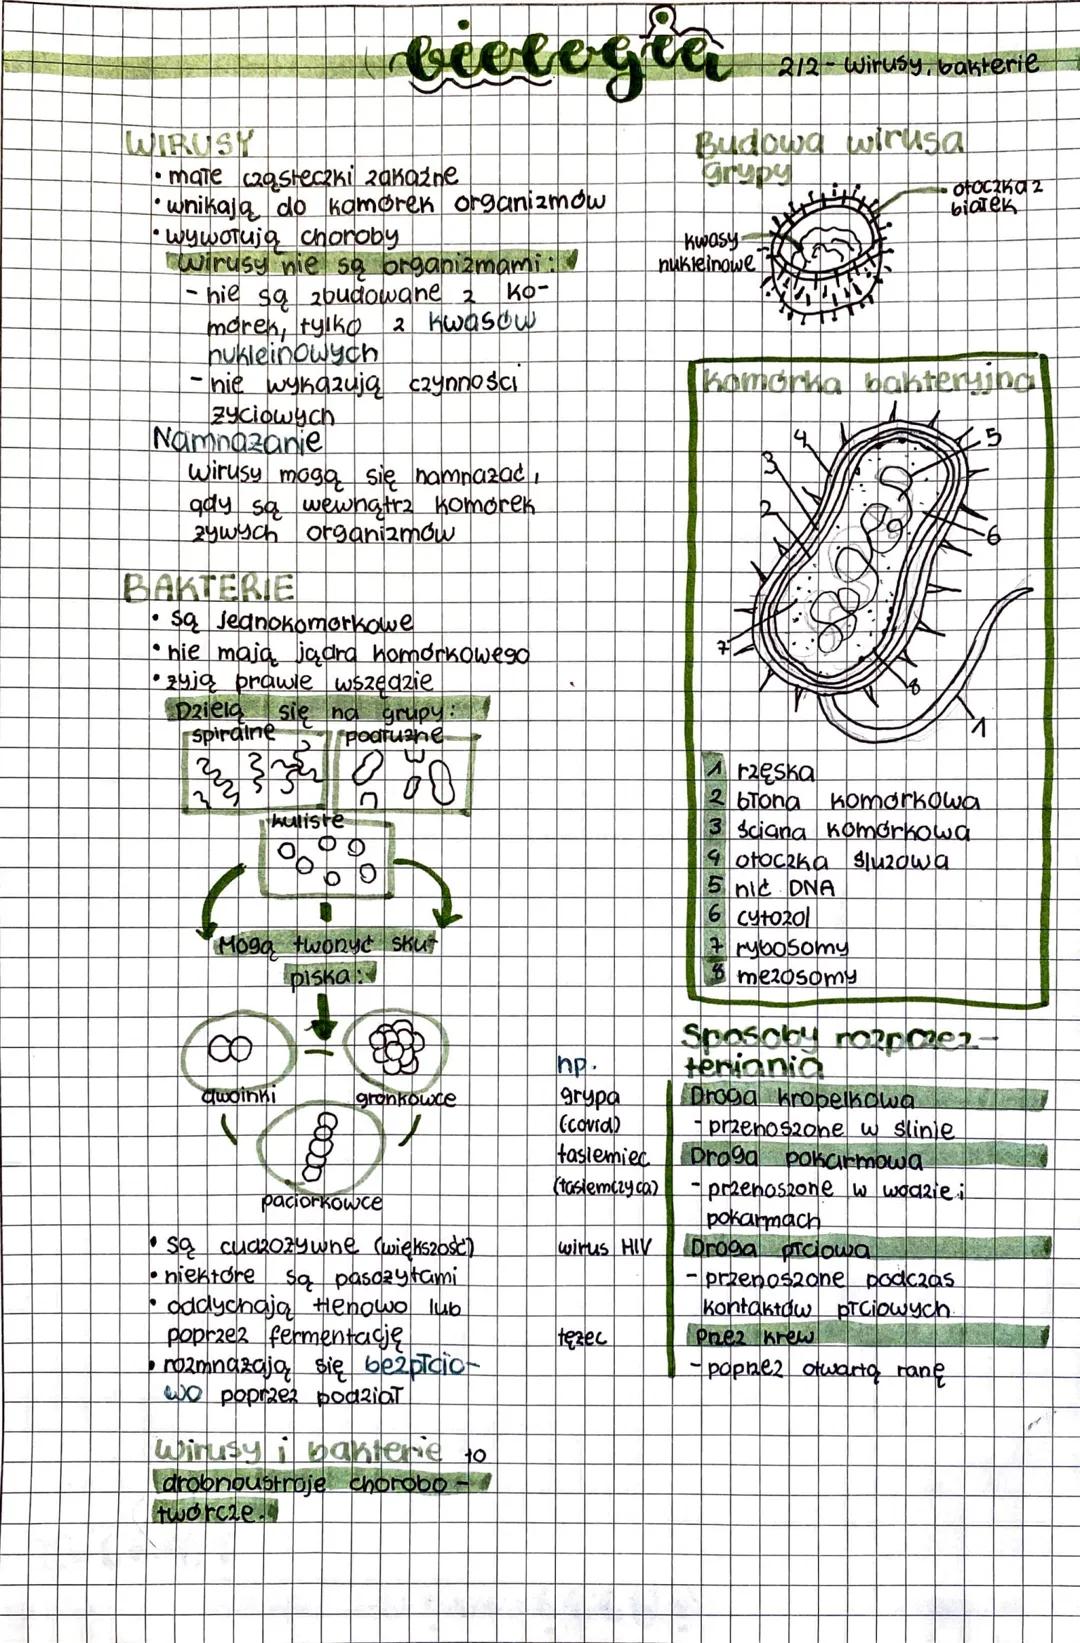 biologia
2/2 - wirusy, bakterie
WIRUSY
• małe cząsteczki zakaźne
• wnikają do komórek organizmów
• wywołują choroby
wirusy nie są organizmami:
- nie są zbudowane z ko-
mórek, tylko z kwasów
nukleinowych
- nie wykazują czynności
życiowych
Namnażanie
wirusy mogą się namnażać,
gdy są wewnątrz komórek
żywych organizmów
BAKTERIE
• są jednokomórkowe
• nie mają jądra komórkowego
• żyją prawie wszędzie
Dzielą się na grupy:
spiralne
podłużne
kuliste
Mogą tworzyć sku+
piska:
dwoinki
gronkowce
paciorkowce
• są cudzożywne (większość)
• niektóre są pasożytami
• oddychają tlenowo lub
poprzez fermentację
• rozmnażają się bezpłcio-
wo poprzez podział
Wirusy i bakterie to
drobnoustroje chorobo-
twórcze.
Budowa wirusa
grypy
otoczka z
białek
kwasy
nukleinowe
Komórka bakteryjna
4
5
3
2
6
7
8
1
1 rzęska
2 błona komórkowa
3 ściana komórkowa
4 otoczka śluzowa
5 nić DNA
6 cytozol
7 rybosomy
8 mezosomy
Sposoby rozprzez-
teniania
np.
grypa
(covid)
Droga kropelkowa
- przenoszone w ślinie
tasiemiec
(tasiemczyca)
Droga pokarmowa
- przenoszone w wodzie i
pokarmach
wirus HIV
Droga płciowa
- przenoszone podczas
kontaktów płciowych
tężec
Przez krew
- poprzez otwartą ranę